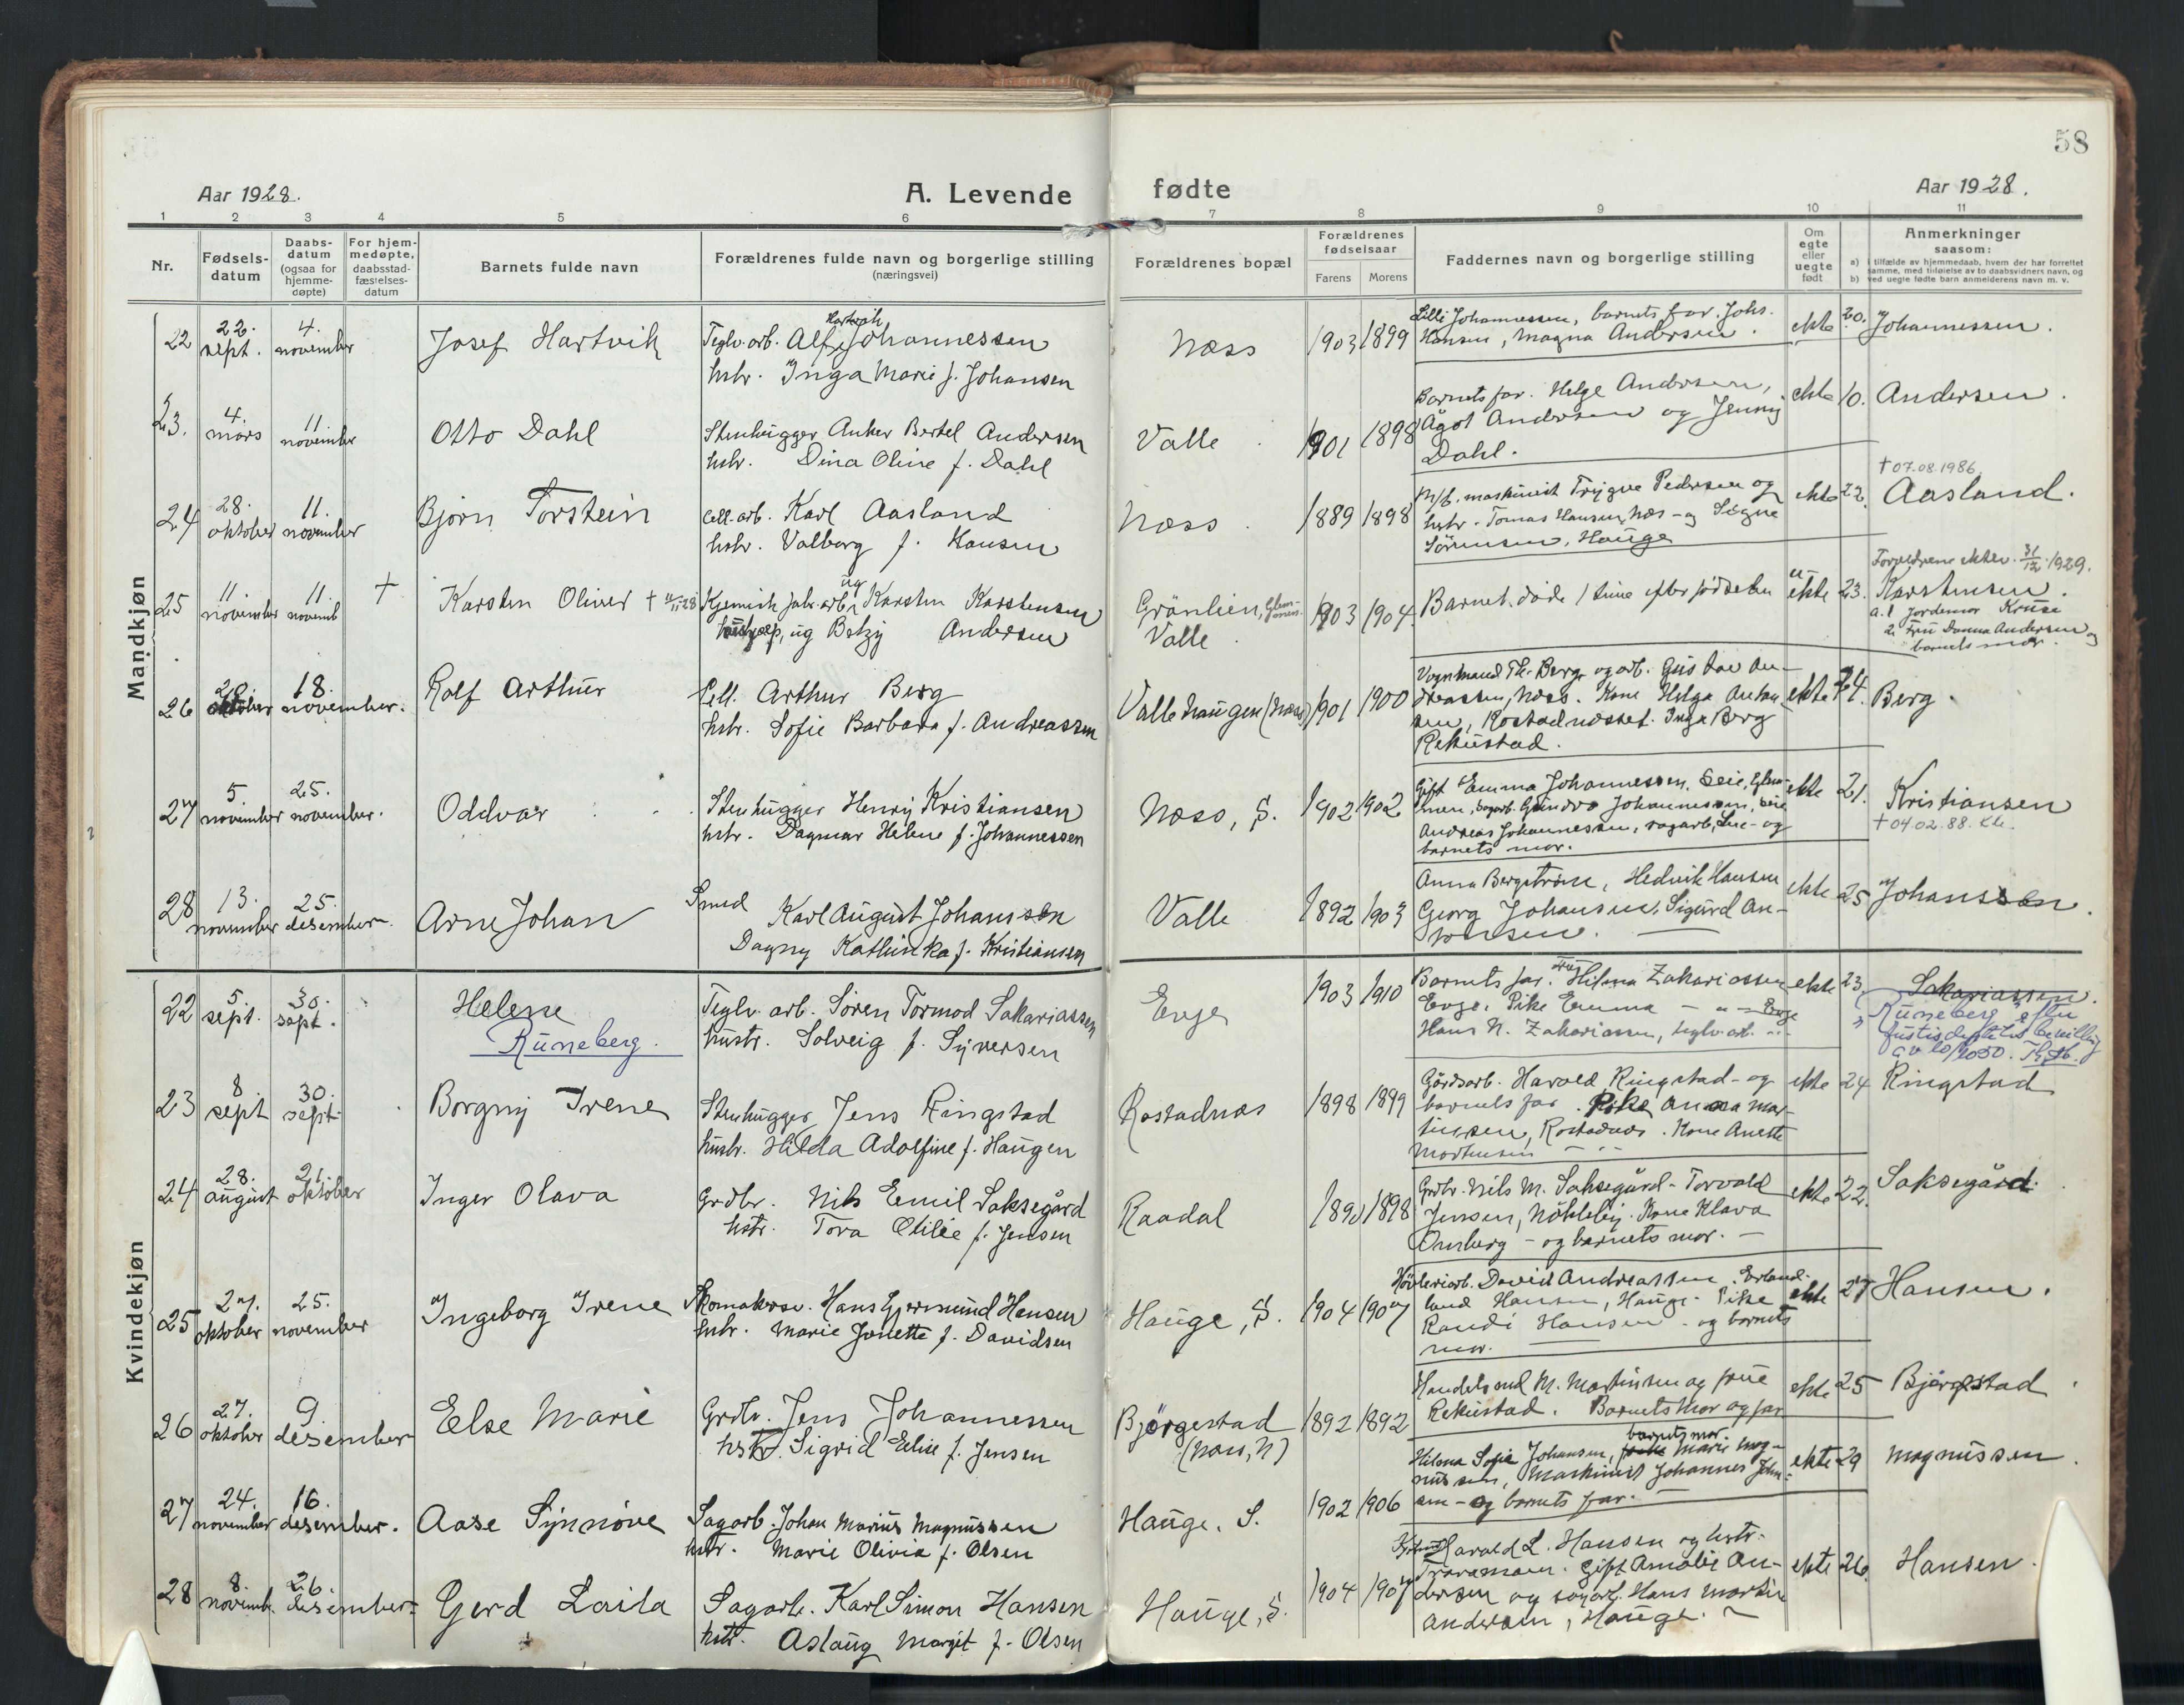 58
Aar 1928.
A. Levende fødte
Aar 1928.
1 2 3 4 5 6 7 8 9 10 11
Nr.
Fødsels-
datum
Daabs-
datum
(ogsaa for
hjemme-
døpte)
For hjem-
medøpte,
daabsstad-
fæstelses-
datum
Barnets fulde navn
Forældrenes fulde navn og borgerlige stilling
(næringsvei)
Forældrenes bopæl
Forældrenes
fødselsaar
Farens Morens
Faddernes navn og borgerlige stilling
Om
egte
eller
uegte
født
Anmerkninger
saasom:
a) i tilfælde av hjemmedaab, hvem der har forrettet
samme, med tilføielse av to daabsvidners navn, og
b) ved uegte fødte barn anmelderens navn m. v.
Mandkjøn
22 22. sept. 4. november
Josef Hartvik
Teglv. arb. Alf Hartvik Johannessen
hstr. Inga Marie f. Johansen
Næss
1903 1899
Lilli Johannessen, barnets far. Johs.
Hansen, Magna Andersen.
ekte 20. Johannessen.
23. 4. mars 11. november
Otto Dahl
Stenhugger Anker Bertel Andersen
hstr. Dina Oline f. Dahl
Valle
1901 1898
Barnets far. Helge Andersen,
Ågot Andersen og Jenny
Dahl.
ekte 10. Andersen.
24 28. oktober 11. november
Bjørn Torstein
Cell. arb. Karl Aasland
hstr. Valborg f. Hansen
Næss.
1889 1898
M/b. maskinist Trygve Pedersen og
hstr. Tomas Hansen, Næs - og Signe
Sörensen, Hauge
ekte 22.
† 07.08.1986
Aasland.
25 11. november 11. novemb †
Karsten Oliver † 11/11-28
Kjemisk fabr. arb. ug Karsten Karstensen
hushjelp, ug Betzy Andersen
Grönlien, Glem-
Valle
1903 1904
Barnet döde 1 time efter födselen
u-
ekte 23.
Foreldrene ektev. 31/12 1929.
Karstensen.
a. 1 Jordemor Kruse
2. Fru Donna Andersen og
barnets mor.
26 28. oktober 18. november.
Rolf Arthur
Cell. Arthur Berg
hstr. Sofie Barbara f. Andreassen
Vallehaugen (Næss)
1901 1900
Vognmand Th. Berg og arb. Gustav An-
dreassen, Næss. Kone Helga Anton
sen, Rostadnæsset. Inga Berg
Rekustad.
ekte 24. Berg.
27 5. november 25. november.
Oddvar
Stenhugger Henry Kristiansen
hstr. Dagmar Helene f. Johannessen
Næss, S.
1902 1902
Gift Emma Johannessen, Seie, Glem-
men, sagarb. Gundro Johannessen, Seie
Andreas Johannessen, sagarb, Sue- og
barnets mor.
ekte 21.
Kristiansen
† 04.02.88.
28 13. november 25. desember.
Arne Johan
Smed
Karl August Johanssen
Dagny Kathinka f. Kristiansen
Valle
1892 1903
Anna Bergström, Hedvik Hansen
Georg Johansen. Sigurd An-
ekte 25 Johanssen.
Kvindekjøn
22 5. sept. 30. sept.
Helene
Runeberg.
Teglv. arb. Sören Tormod Sakariassen
hustr. Solveig f. Syversen
Evje
1903 1910
Barnets far. Hilma Zakariassen
Evje. Pike Emma - " - Evje
Hans N. Zakariassen, teglv. arb.
ekte 23.
Sakariassen.
Runeberg efter
Justisdeptets bevilling
av 10/1050.
23 8 sept 30. sept-
Borgny Irene
Stenhugger Jens Ringstad
hustr. Hilda Adolfine f. Haugen
Rostadnæs
1898 1899
Gårdsarb. Harald Ringstad - og
barnets far. Pike Anna Mar-
tinsen, Rostadnæs. Kone Anette
Mortensen
ekte 24 Ringstad
24 28. august 21. oktober
Inger Olava
Grdbr. Nils Emil Saksegård
hstr. Tora Otilie f. Jensen
Raadal
1890 1898
Grdbr. Nils M. Saksegård - Torvald
Jensen, Nökleby. Kone Klava
Omberg - og barnets mor.
ekte 22. Saksegård.
25 27. oktober 25. november
Ingeborg Irene
Skomakersv. Hans Germund Hansen
hstr. Marie Jonette f. Davidsen
Hauge, S.
1904 1907
Hövleriarb. David Andreassen. Erland-
land Hansen, Hauge. Pike
Randi Hansen - og barnets
mor.
ekte 27 Hansen.
26 27. oktober 9. desember
Else Marie
Grdbr. Jens Johannessen
hstr. Sigrid Elise f. Jensen
Bjørgestad
(Næss, N)
1892 1892
Handelsmd M. Martinsen og frue
Rekustad. Barnets Mor og far
ekte 25 Bjørgstad
27 24. november 16. desember.
Aase Synnöve
Sagarb. Johan Marius Magnussen
hstr. Marie Olivia f. Olsen
Hauge. S.
1902 1906
barnets mor.
Hilma Sofie Johansen, Marie Mag-
nussen, Maskinist Johannes John-
sen - og barnets far.
ekte 29 Magnussen.
28 8. novemb. 26. desember.
Gerd Laila
Sagarb. Karl Simon Hansen
hstr. Aslaug Margit f. Olsen
Hauge, S.
1904 1907
Harald L. Hansen og hstr.
Gift Amalie An-
dersen og sagarb. Hans Martin
Andersen, Hauge.
ekte 26. Hansen.